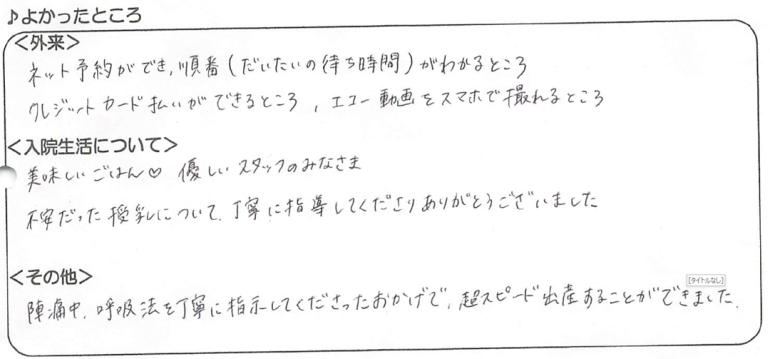 ♪よかったところ
<外来>
ネット予約ができ、順番(だいたいの待ち時間)がわかるところ
クレジットカード払いができるところ、エコー動画をスマホで撮れるところ
<入院生活について>
美味しいごはん♡ 優しいスタッフのみなさま
不安だった授乳について、丁寧に指導してくださりありがとうございました
<その他>
[タイトルなし]
陣痛中、呼吸法を丁寧に指示してくださったおかげで、超スピード出産することができました。